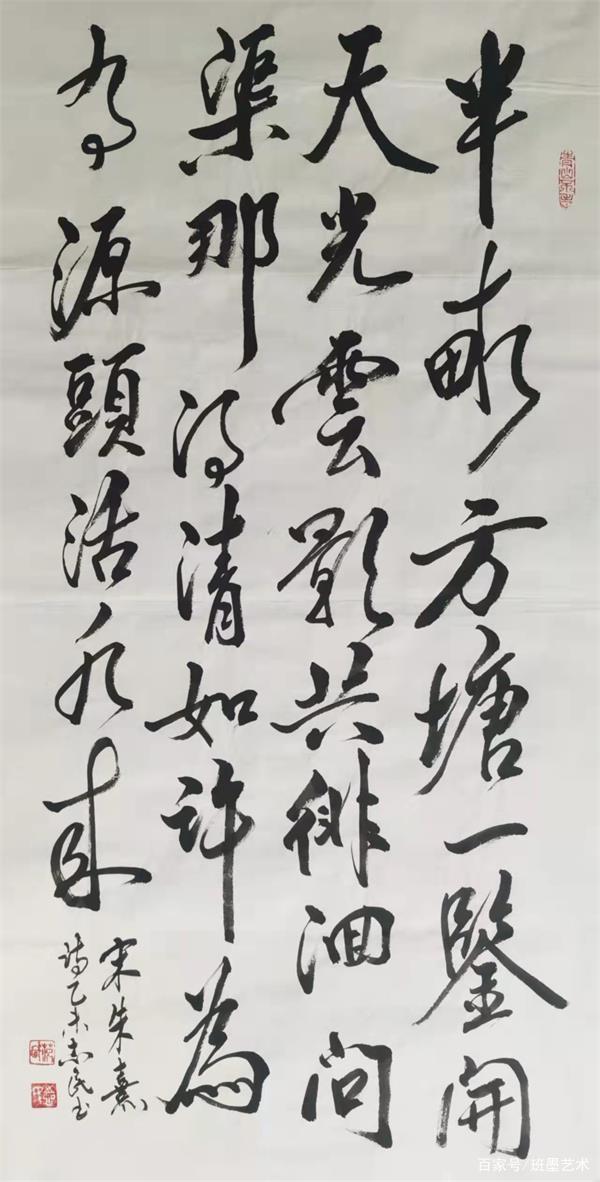 半畝方塘一鑒開
天光雲影共徘徊問
渠那得清如許為
有源頭活水来
宋朱熹
詩乙未志民书
百家号/班墨艺术